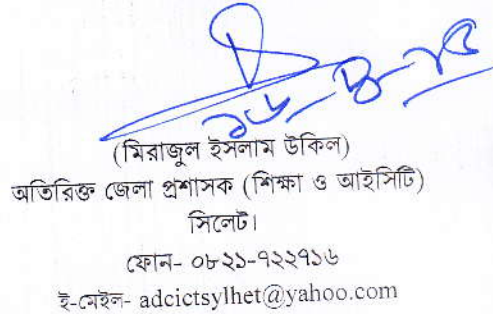 ১৬-৪-১৫
(মিরাজুল ইসলাম উকিল)
অতিরিক্ত জেলা প্রশাসক (শিক্ষা ও আইসিটি)
সিলেট।
ফোন- ০৮২১-৭২২৭১৬
ই-মেইল- adcictsylhet@yahoo.com